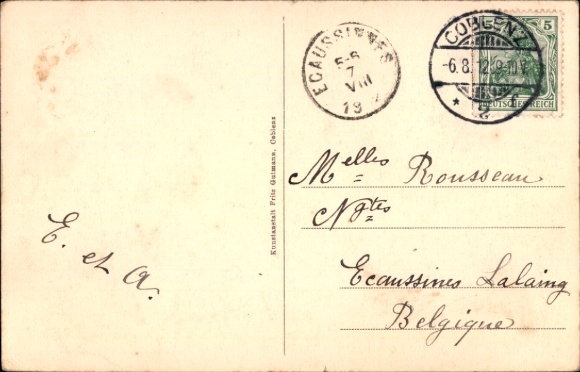 ECAUSSINNES
5-6
7
VIII
19
COBLENZ
-6.8.12.9-10V.
* 2 f
5
DEUTSCHES REICH
Kunstanstalt Fritz Gutmann, Coblenz
Melles Rousseau
Ngtes
Ecaussines Lalaing
Belgique
E. et A.